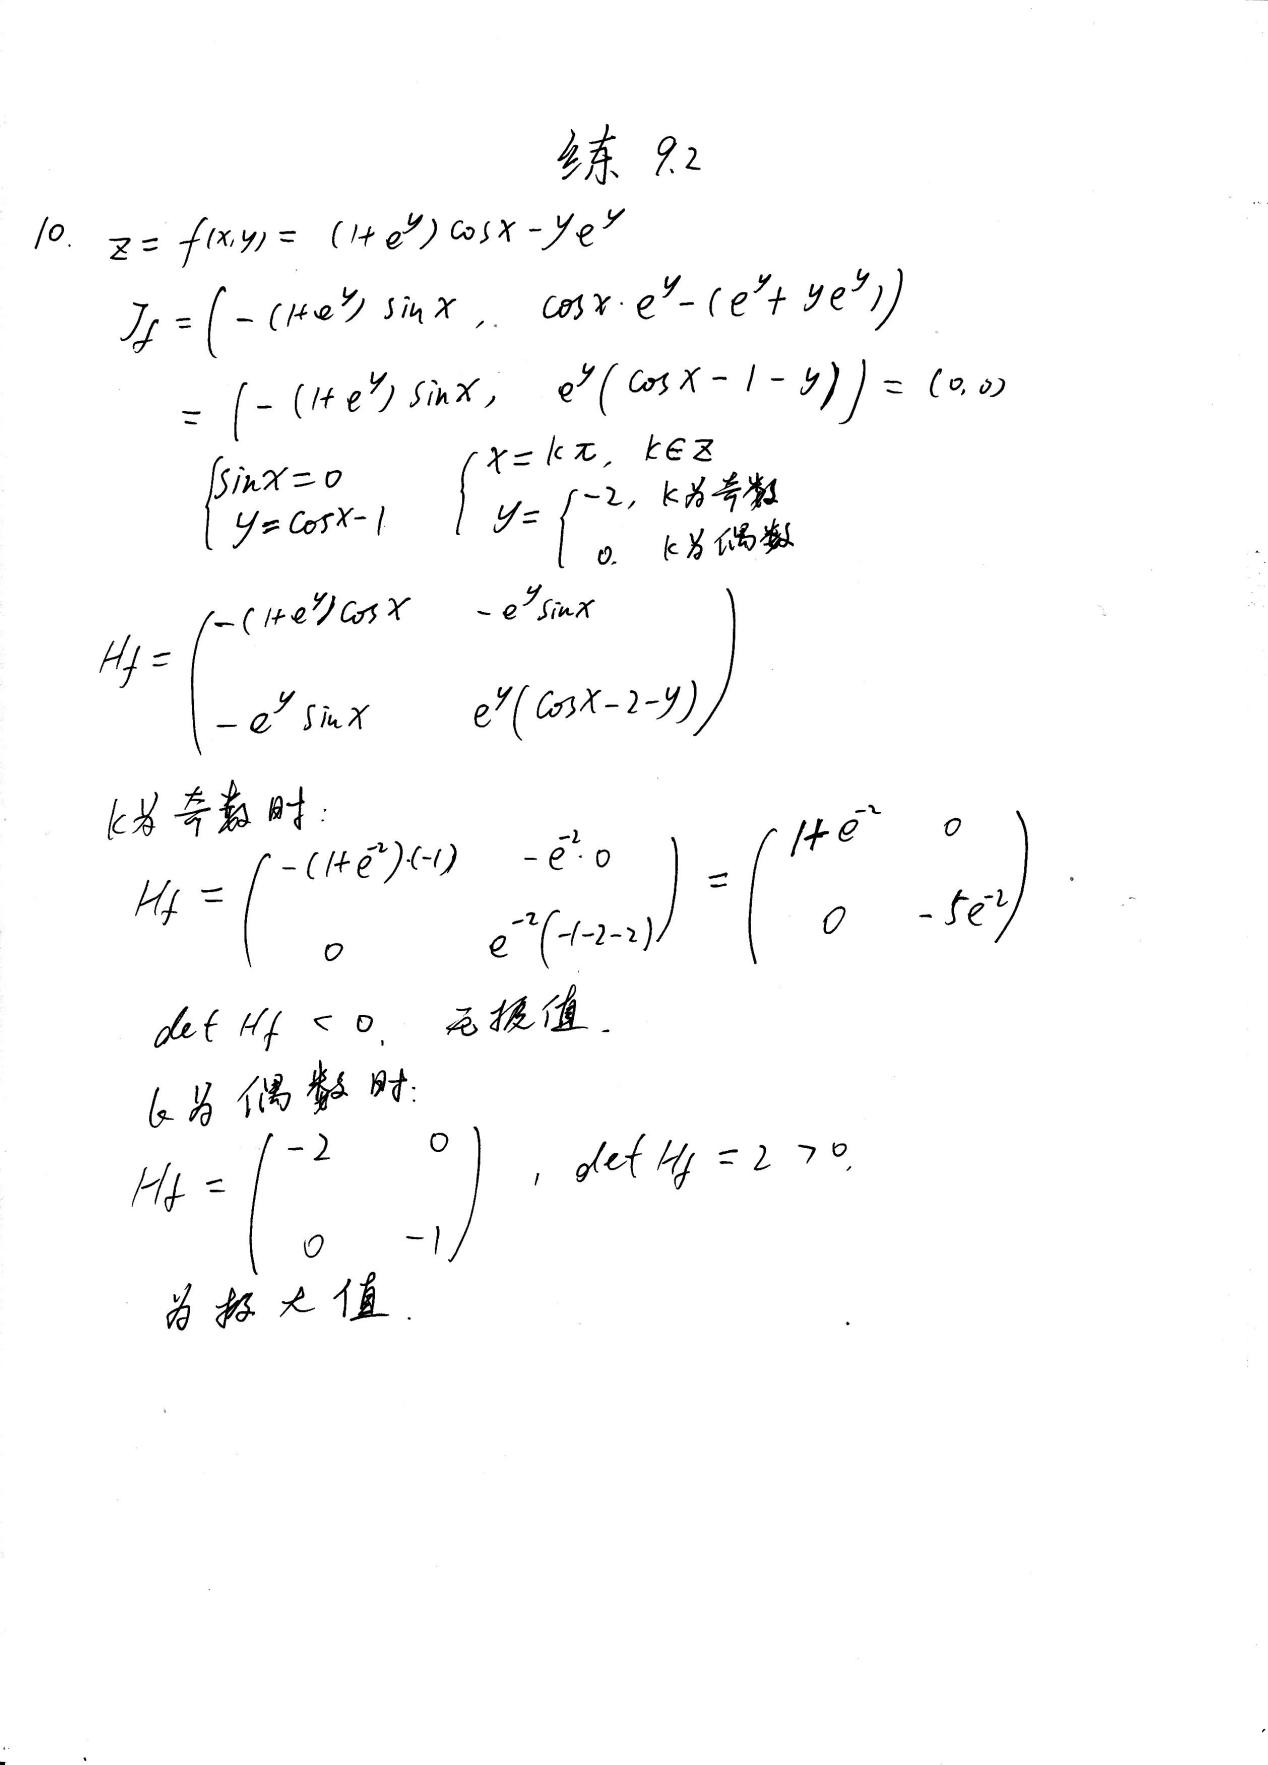 练 9.2
10. z = f(x,y) = (1+e^y) cosx - ye^y
J_f = ( -(1+e^y) sinx , cosx·e^y - (e^y + ye^y) )
= ( -(1+e^y) sinx, e^y( cosx - 1 - y) ) = (0,0)
{ sinx = 0 { x = kπ, k∈Z
y = cosx-1 y = { -2, k为奇数
0. k为偶数
H_f = ( -(1+e^y) cosx -e^y sinx
-e^y sinx e^y( cosx-2-y) )
k为奇数时:
H_f = ( -(1+e^-2)·(-1) -e^-2·0 = ( 1+e^-2 0
0 e^-2(-1-2-2) ) 0 -5e^-2 )
det H_f < 0, 无极值.
k为偶数时:
H_f = ( -2 0 , det H_f = 2 > 0,
0 -1 )
为极大值.